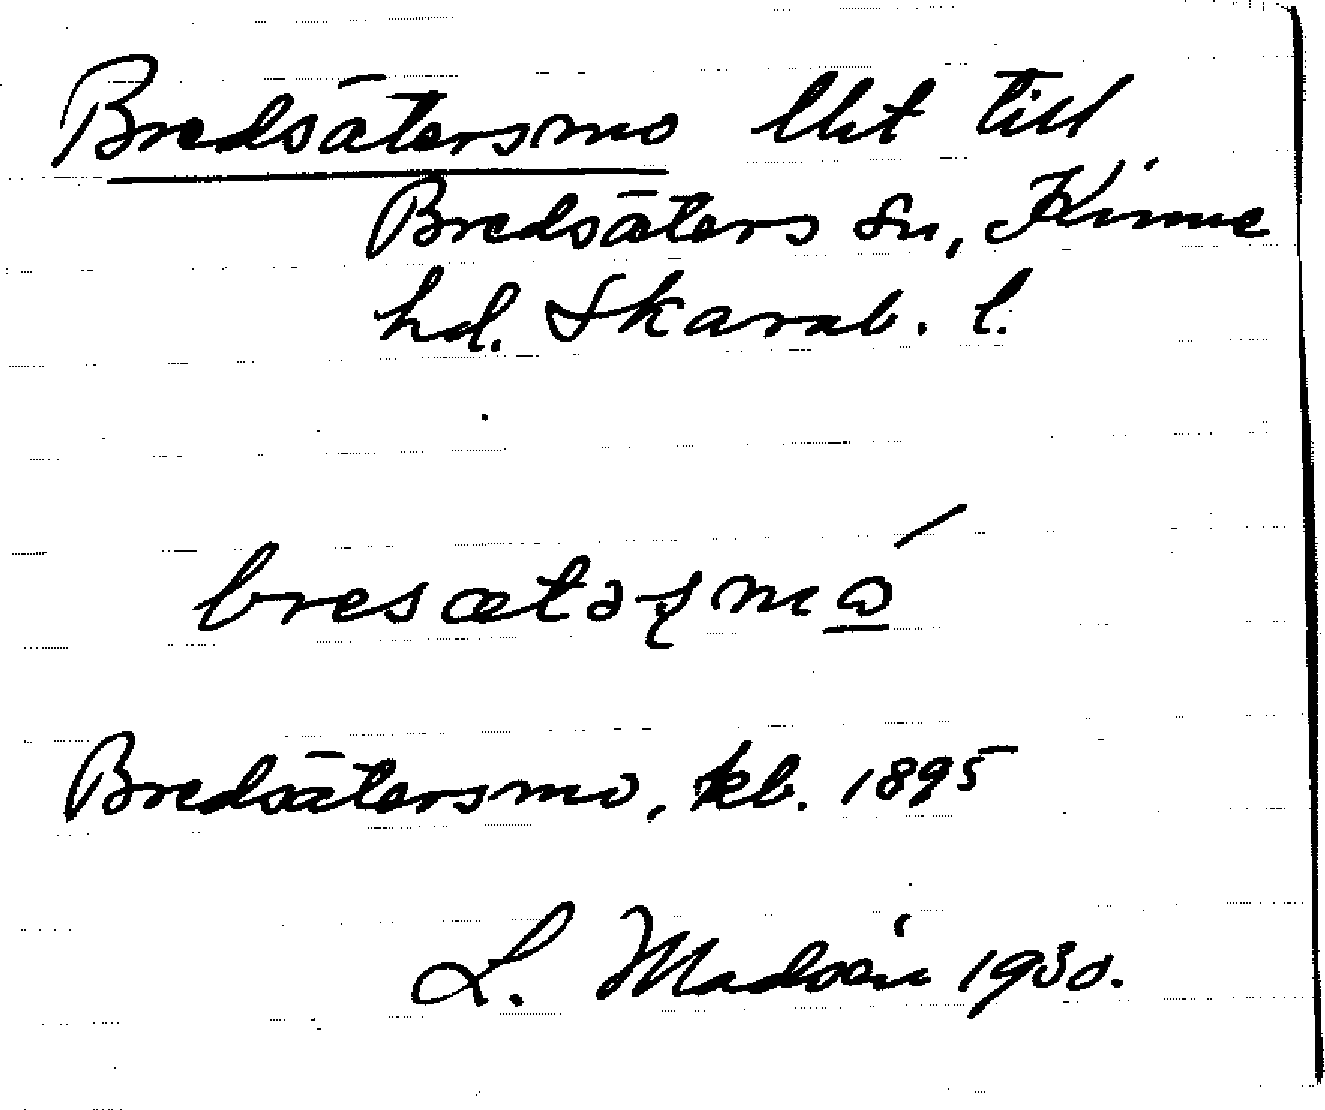 Bredsätersmo lht till
Bredsäters sn, Kinne
hd. Skarab. l.
bresætəʂmó̲
Bredsätersmo, kb. 1895
L. 1930.